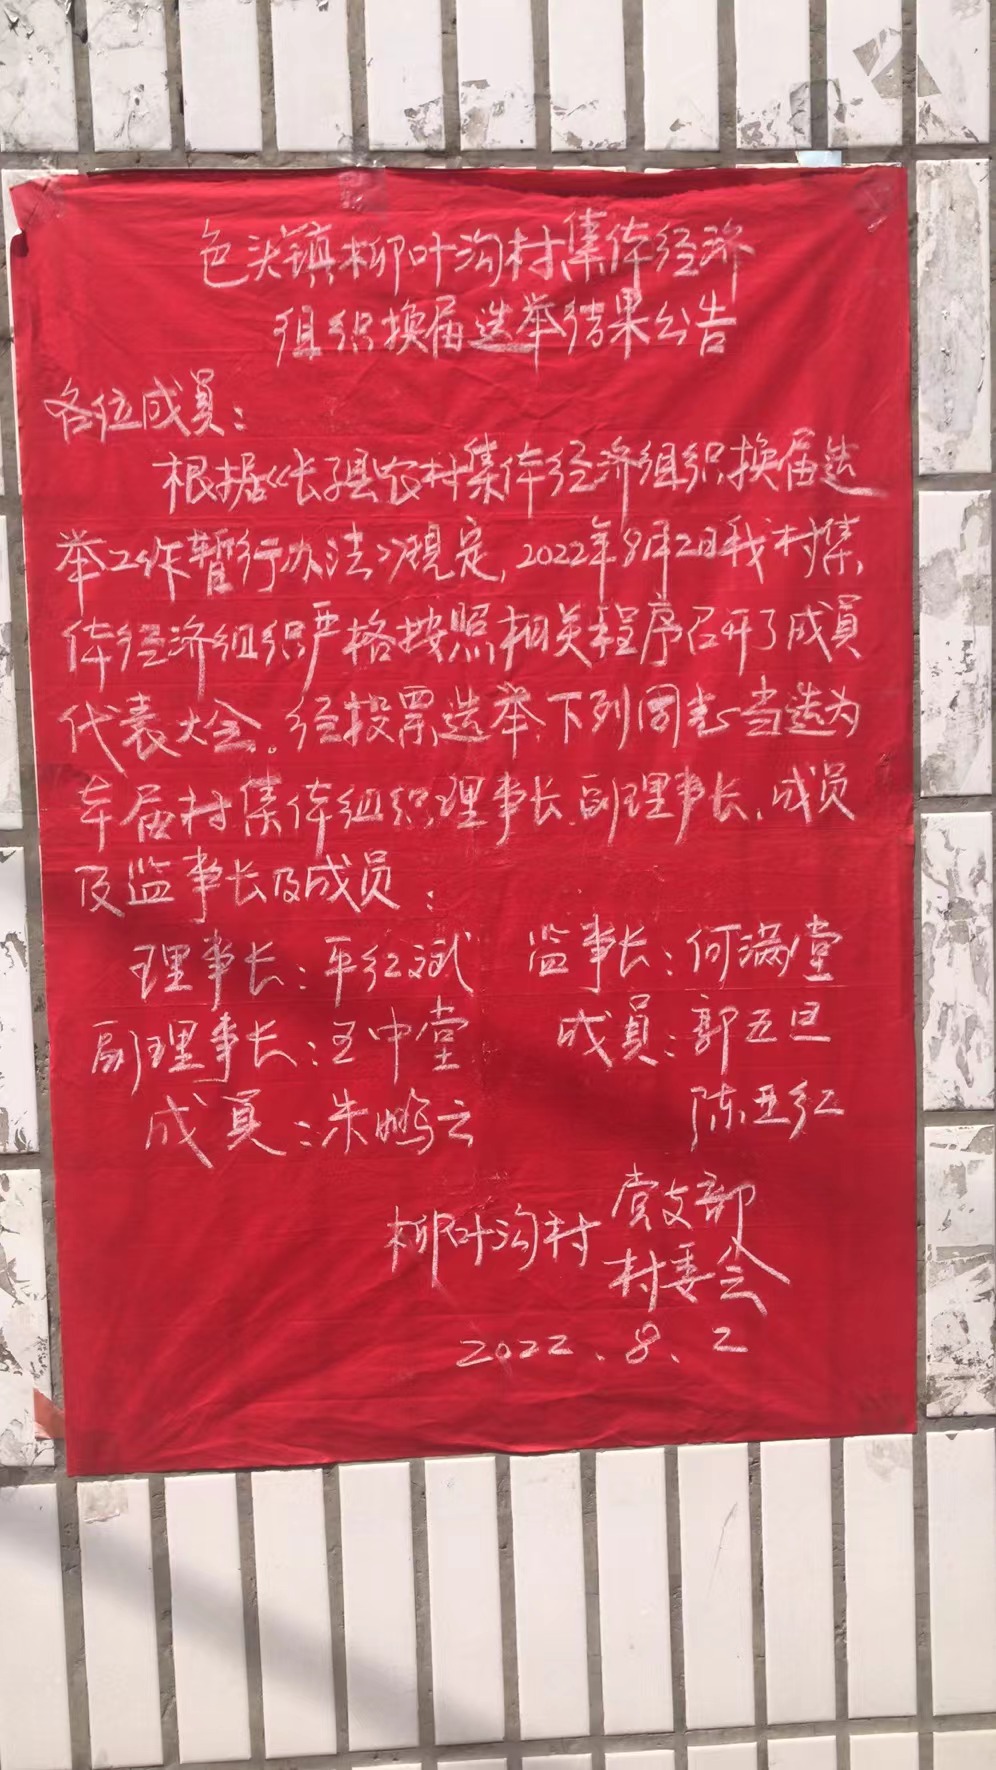 色头镇柳叶沟村集体经济
组织换届选举结果公告
各位成员：
根据《长子县农村集体经济组织换届选
举工作暂行办法》规定，2022年8月2日我村集
体经济组织严格按照相关程序召开了成员
代表大会。经投票选举，下列同志当选为
本届村集体组织理事长、副理事长、成员
及监事长及成员：
理事长：平红斌 监事长：何满堂
副理事长：王中堂 成员：郭五旦
成员：朱鹏云 陈丑红
柳叶沟村 党支部
村委会
2022.8.2